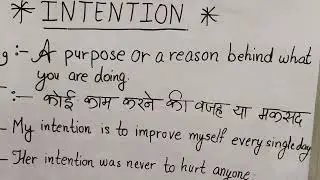 * INTENTION *
g :- A purpose or a reason behind what
you are doing.
:- कोई काम करने की वजह या मकसद
- My intention is to improve myself every single day
- Her intention was never to hurt anyone.